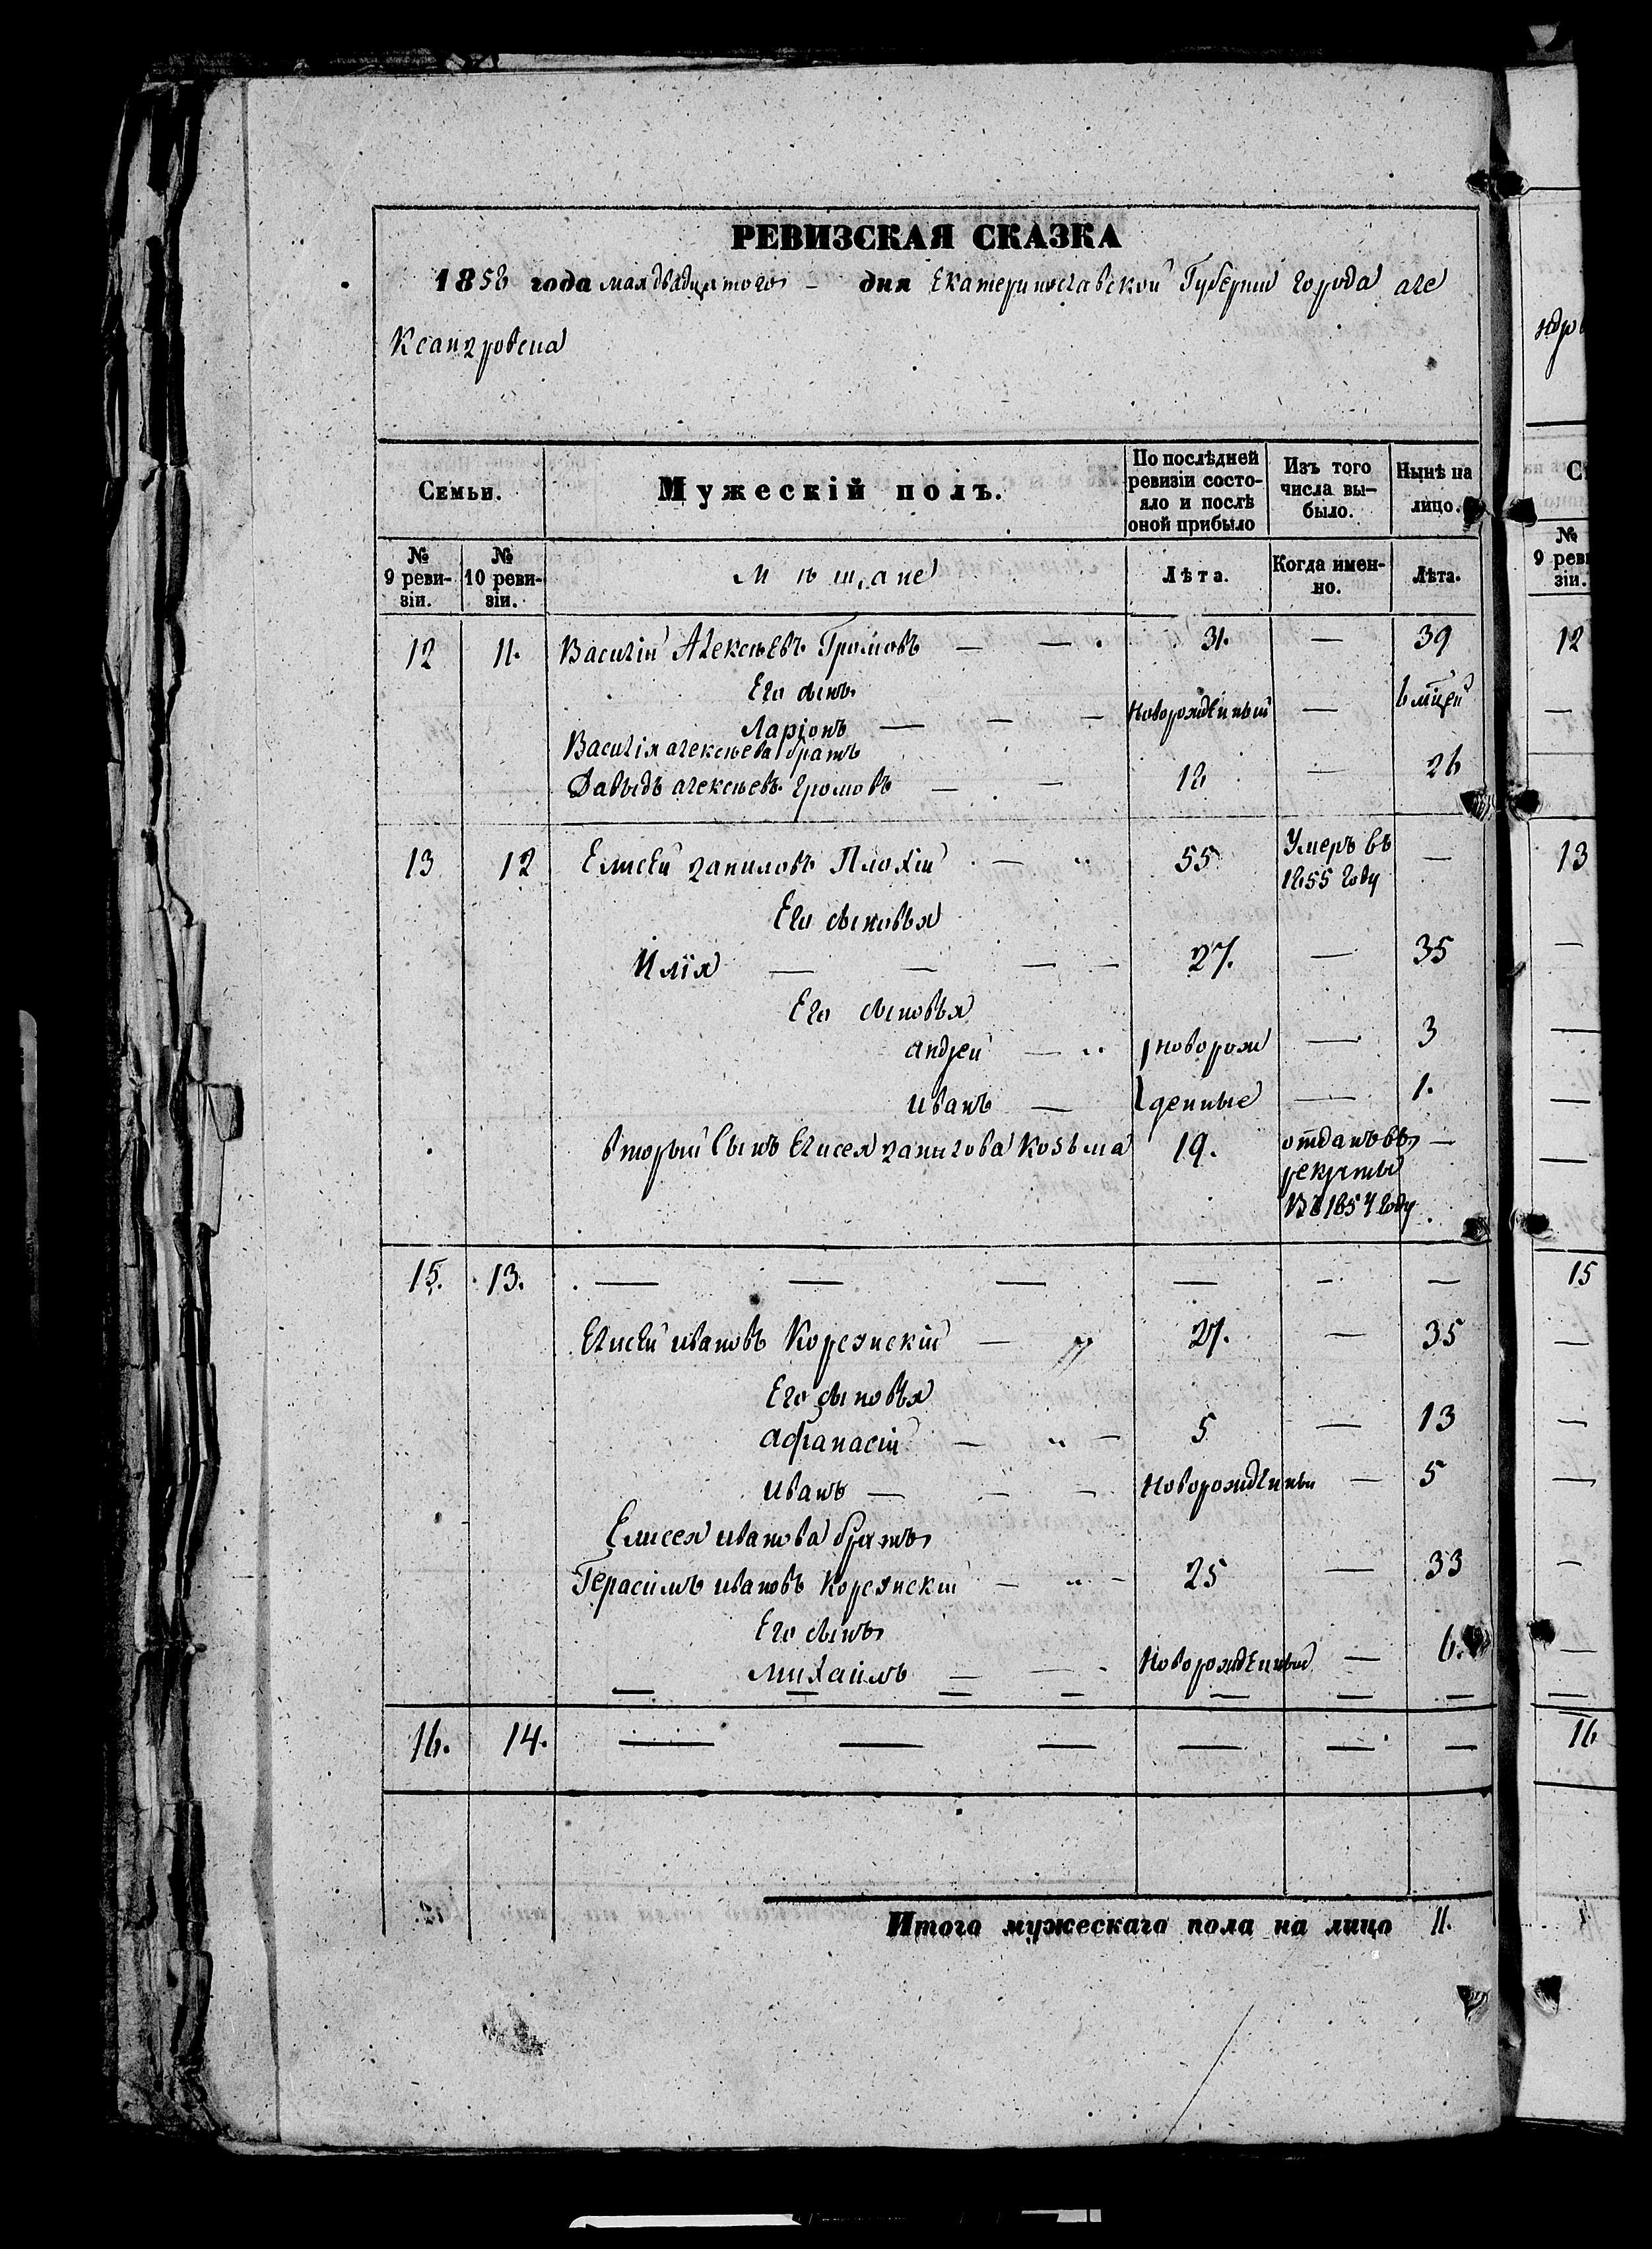 РЕВИЗСКАЯ СКАЗКА
1858 года мая двадцятого – дня Екатеринославской Губернии города але
ксандровска
Семьи. Мужескій полъ. По послѣдней ревизіи состо-яло и послѣ оной прибыло Изъ того числа вы-было. Нынѣ на лицо.
№ 9 реви-зіи. № 10 реви-зіи. Мѣщане Лѣта. Когда имен-но. Лѣта.
12 11. Василій Алексѣевъ Громовъ — — . 31. — 39
Его сынъ
Ларіонъ — — — Новорожденный — 6 мцей
Василія алексѣева братъ
Давыдъ алексѣевъ громовъ — — 18 — 26
13 12 Елисей даниловъ Плохій — „ 55 Умеръ въ 1855 году —
Его сыновья
Илія — — — — 27. — 35
Его сыновья
андрей — „ новорож — 3
иванъ — денные — 1.
вторый сынъ Елисея данилова Козьма 19. отданъ въ рекруты Въ 1854 году —
15. 13. — — — — — —
Елисей ивановъ Корсунскій — „ 27. — 35
Его сыновья
афанасій — „ — 5 — 13
иванъ — — — Новорожденный — 5
Елисея иванова братъ
Герасимъ ивановъ Корсунскій — „ — 25 — 33
Его сынъ
Михаилъ — — - Новорожденный — 6.
— — — — — — —
16. 14. — — — — — —
Итого мужескаго пола на лицо 11.
ндров
С
№
9 реви
зіи.
12
—
13
—
—
—
—
15
—
—
—
—
—
—
16